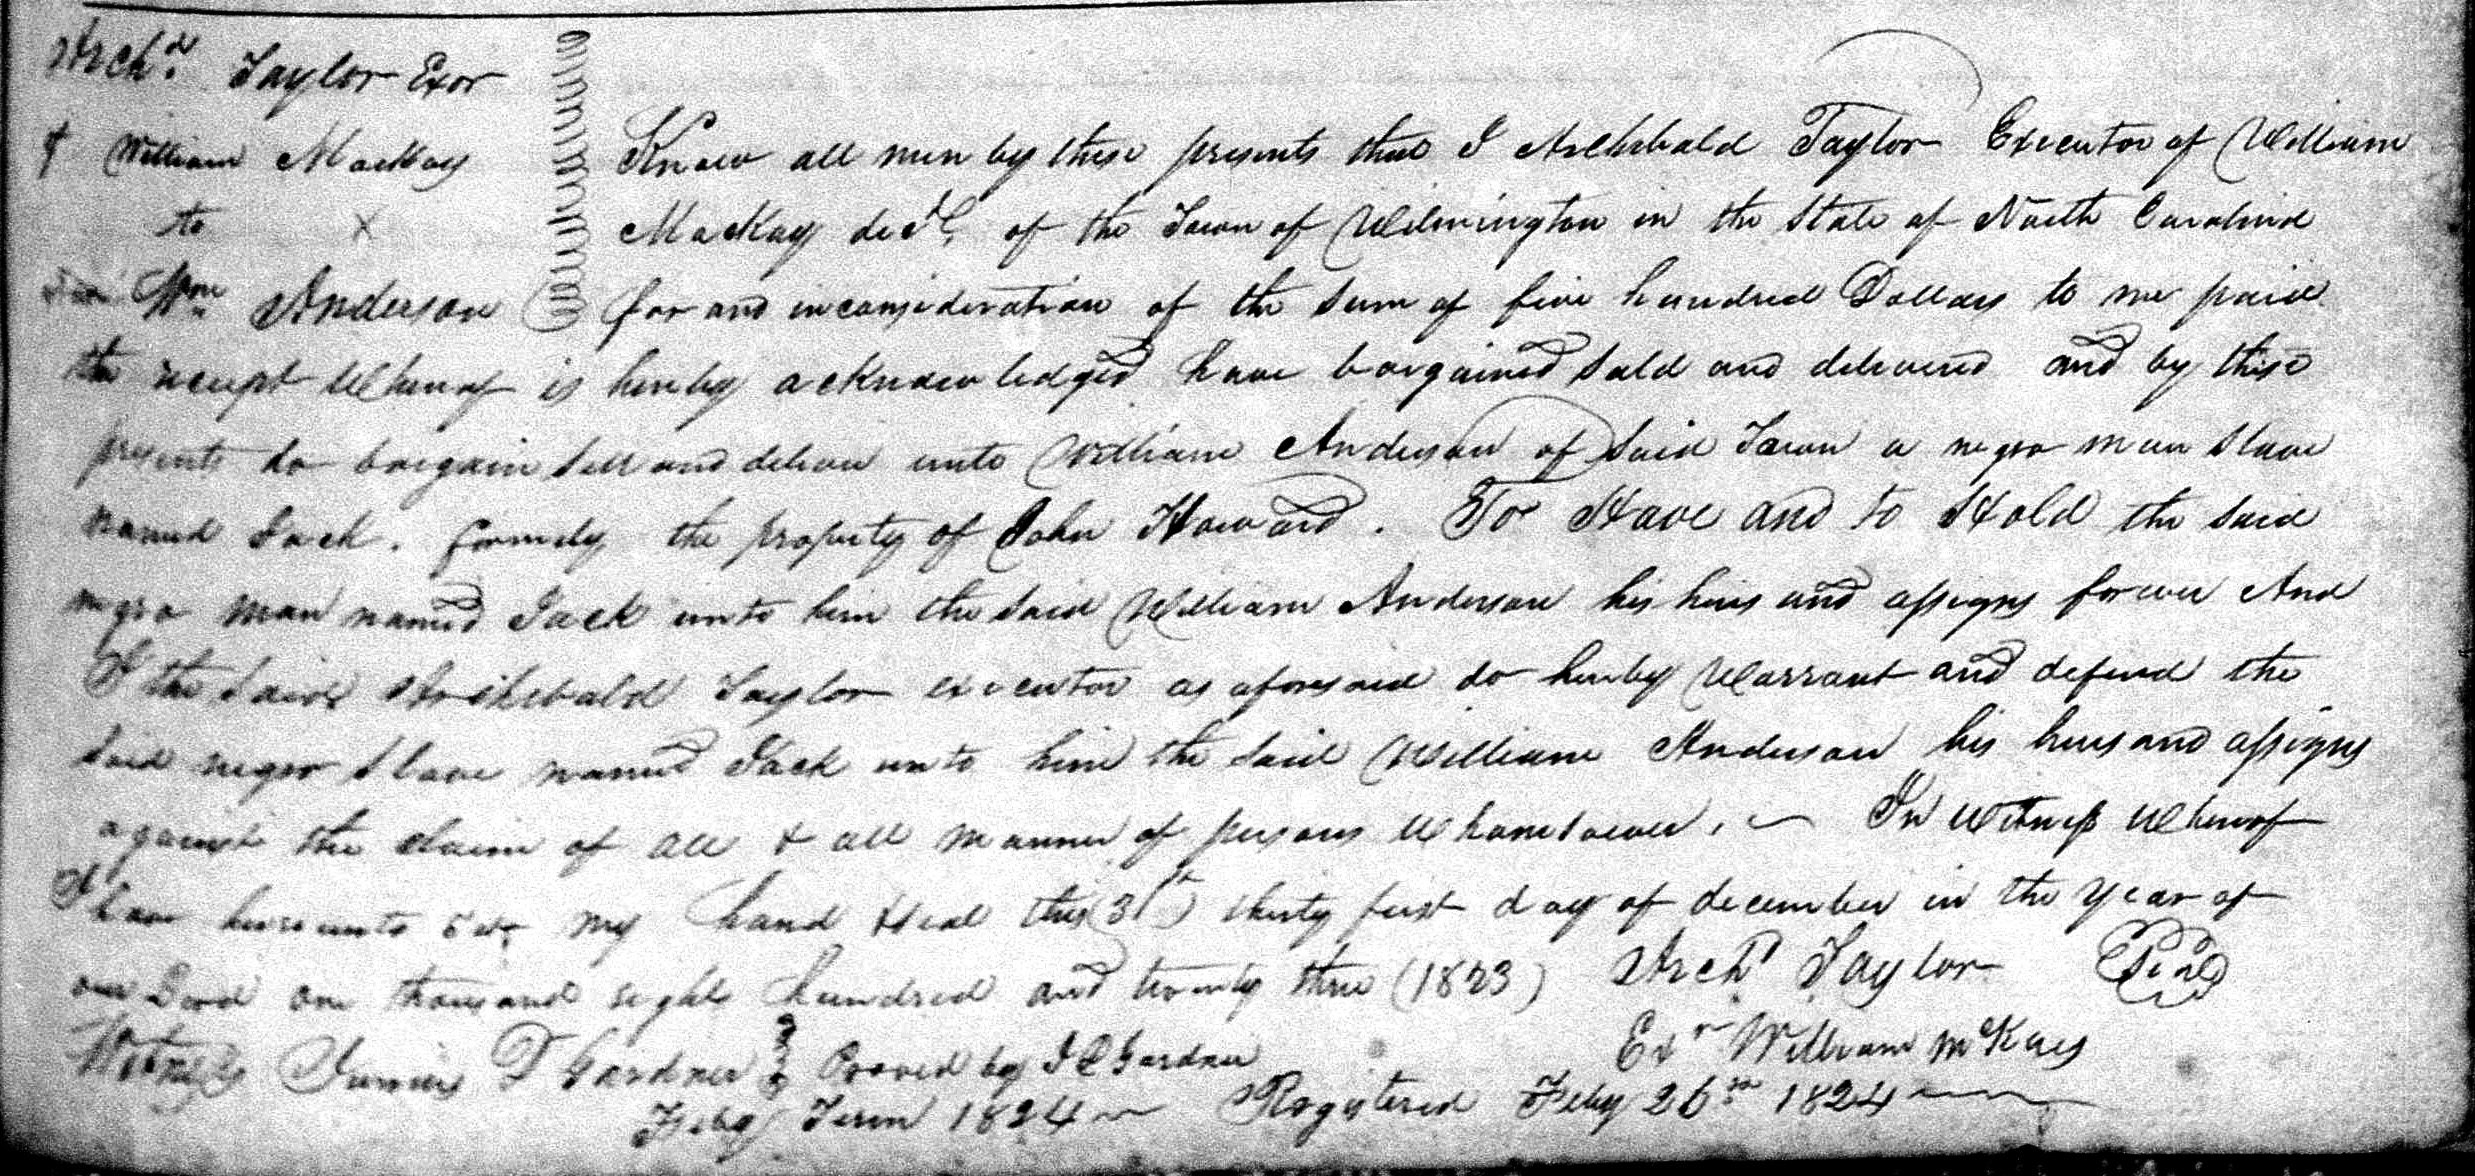 Archd. Taylor Exor
of William MacKay
to X
Wm Anderson
Know all men by these presents that I Archibald Taylor Executor of William
MacKay decd. of the Town of Wilmington in the State of North Carolina
for and in consideration of the sum of five hundred Dollars to me paid
the receipt Whereof is hereby acknowledged have bargained Sold and delivered and by these
presents do bargain Sell and deliver unto William Anderson of Said Town a negro man Slave
named Jack. formerly the property of John Howard. To Have and to Hold the Said
negro man named Jack unto him the Said William Anderson his heirs and assigns forever And
I the Said Archibald Taylor executor as aforesaid do hereby Warrant and defend the
Said negro Slave named Jack unto him the Said William Anderson his heirs and assigns
against the claim of all & all manner of persons Whomsoever. In Witness Whereof
I have hereunto set my hand & seal this (31st) thirty first day of december in the year of
our Lord one thousand eight hundred and twenty three (1823) Archd Taylor Seal
Exr William McKay
Witness D Gardner Proved by Gardner
Feby Term 1824 Registered Feby 26th 1824